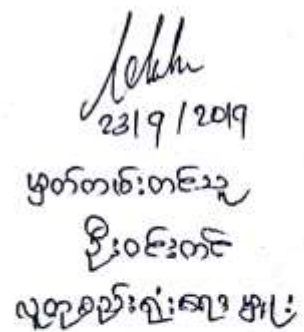 23/9/2019
မှတ်တမ်းတင်သူ
ဦးဝင်းတင်
လူထုစည်းရုံးရေးမှူး